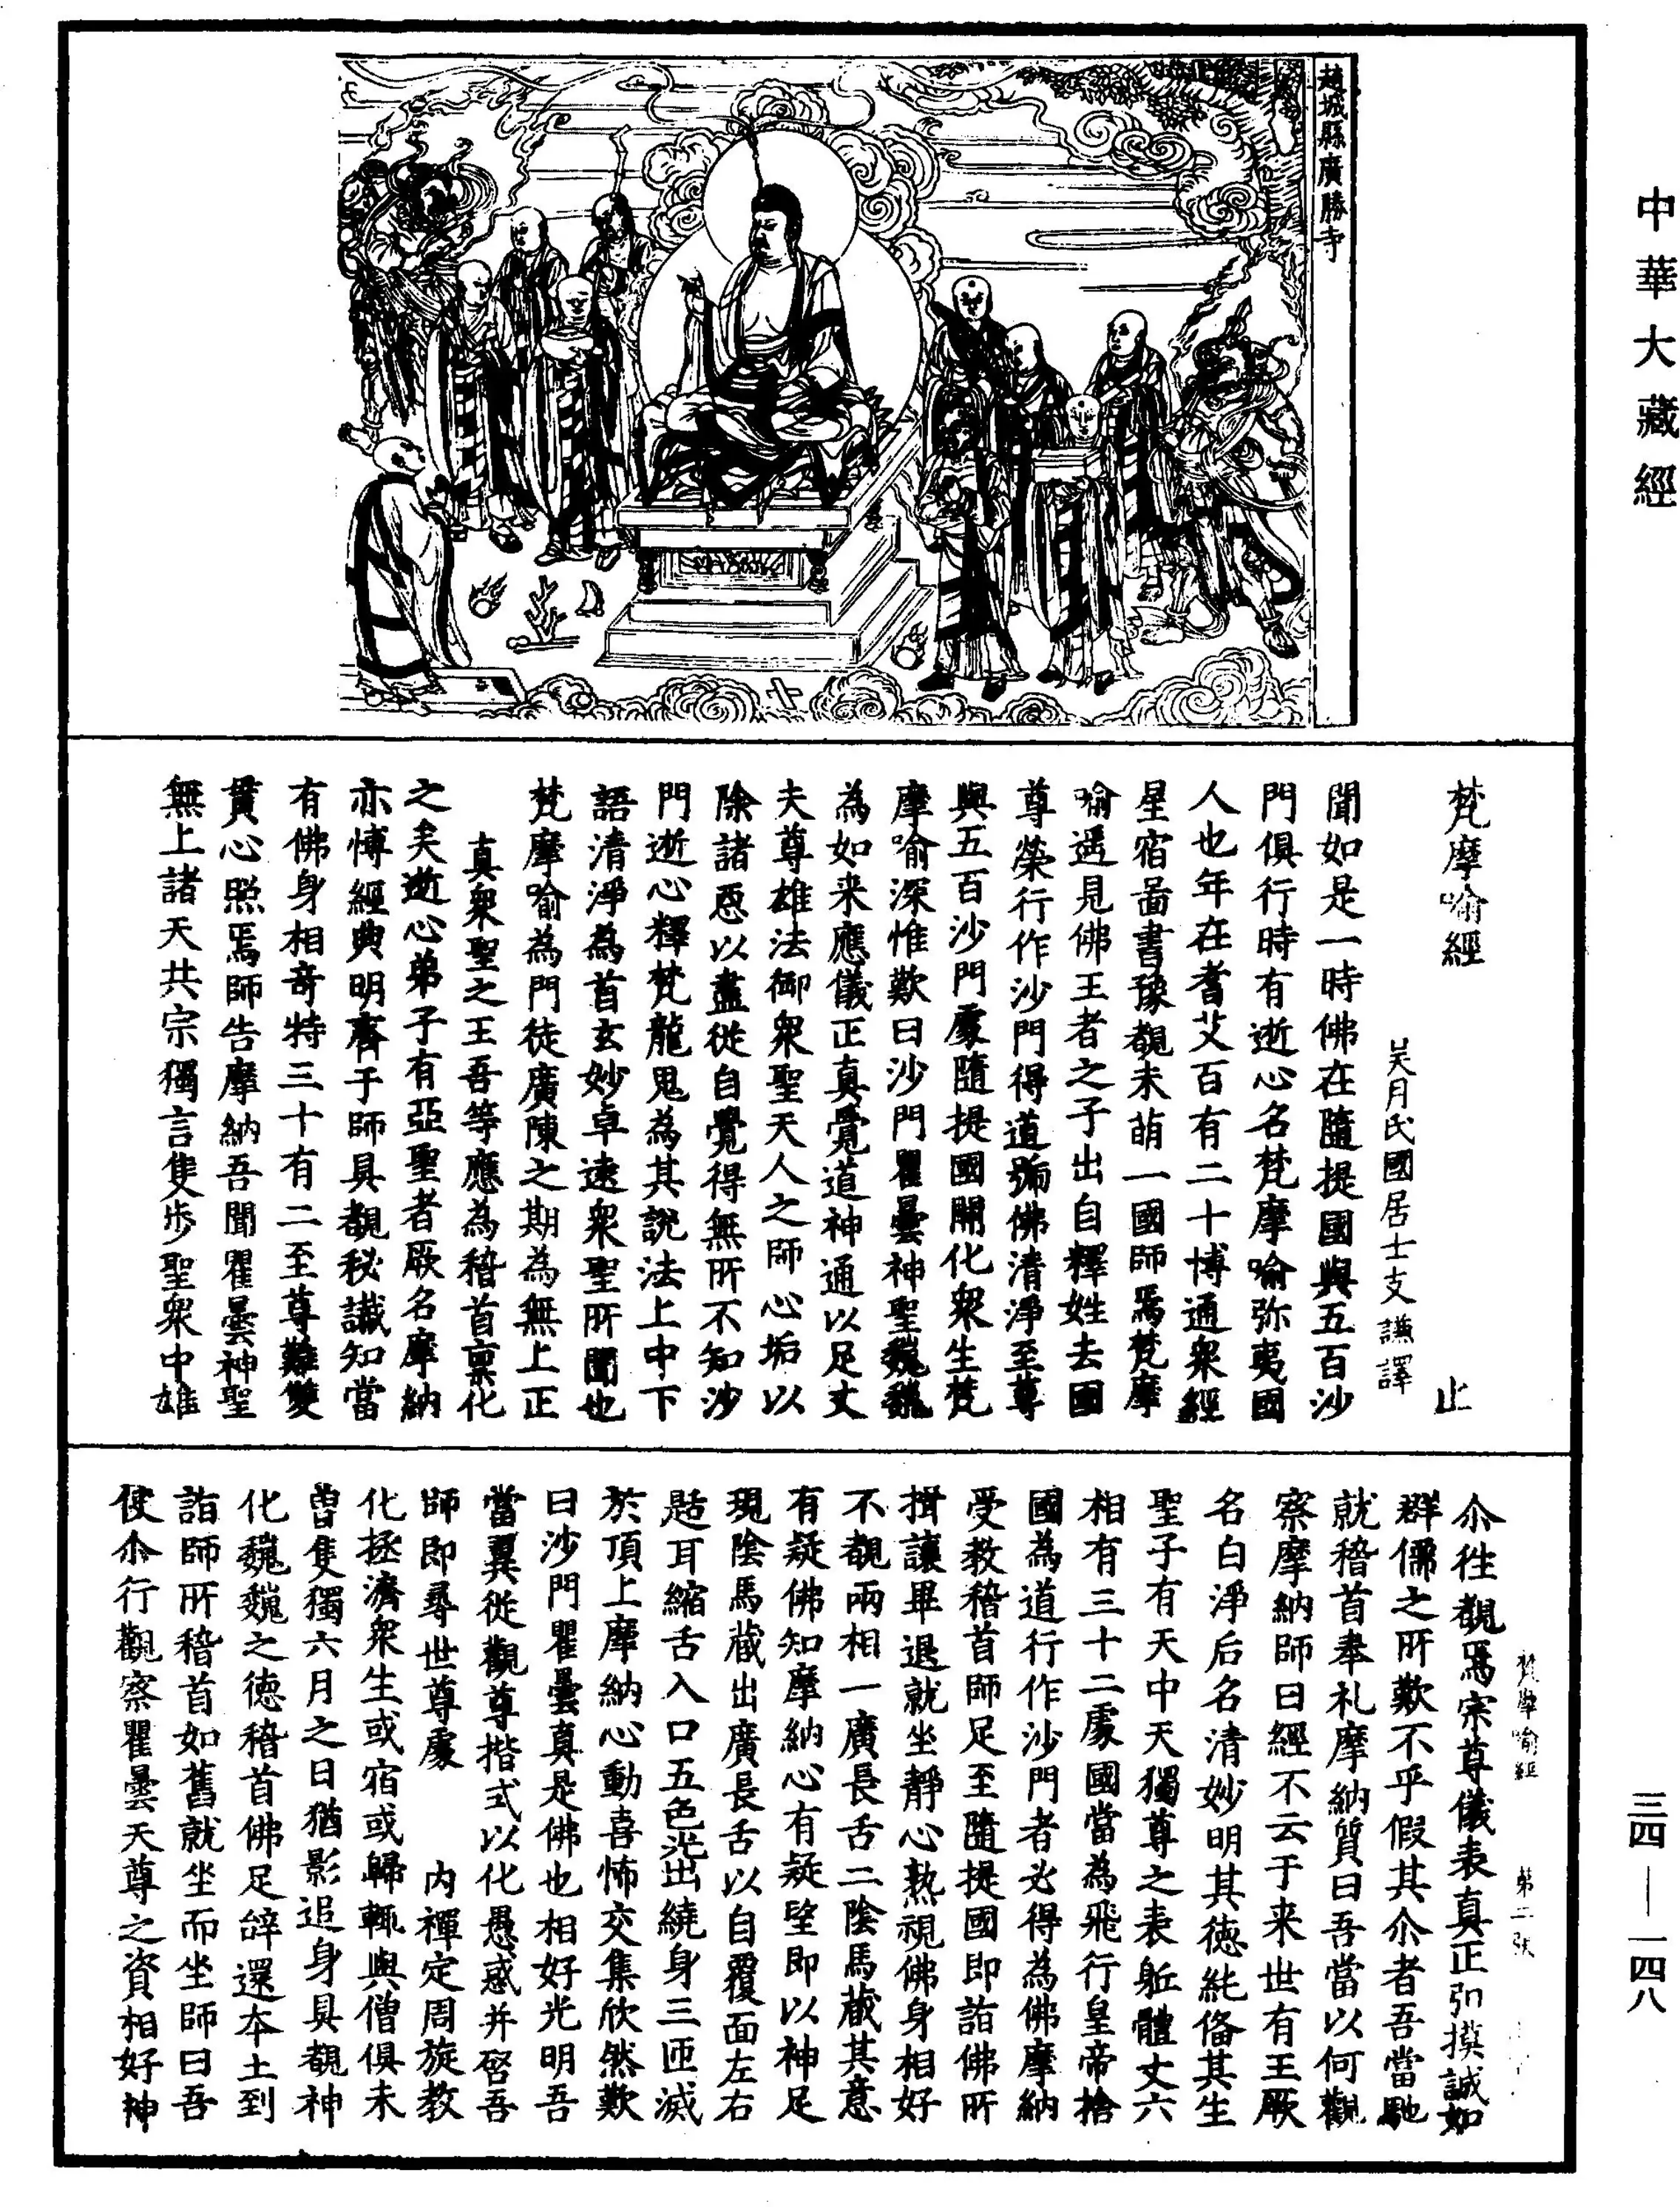 中華大藏經
趙城縣廣勝寺
梵摩喻經
止
吴月氏國居士支謙譯
聞如是一時佛在隨提國與五百沙
門俱行時有逝心名梵摩喻弥夷國
人也年在耆艾百有二十博通衆經
星宿啚書豫覩未萌一國師焉梵摩
喻遥見佛王者之子出自釋姓去國
尊榮行作沙門得道號佛清淨至尊
與五百沙門處隨提國開化衆生梵
摩喻深惟歎曰沙門瞿曇神聖巍巍
為如来應儀正真覺道神通以足丈
夫尊雄法御衆聖天人之師心垢以
除諸惡以盡從自覺得無所不知沙
門逝心釋梵龍鬼為其説法上中下
語清淨為首玄妙卓遠衆聖所聞也
梵摩喻為門徒廣陳之期為無上正
真衆聖之王吾等應為稽首禀化
之矣逝心弟子有亞聖者厥名摩納
亦博經典明齊于師具覩秘讖知當
有佛身相奇特三十有二至尊難雙
貫心照焉師告摩納吾聞瞿曇神聖
無上諸天共宗獨言隻步聖衆中雄
尒往覩焉宗尊儀表真正弘摸誠如
群儒之所歎不乎假其尒者吾當馳
就稽首奉礼摩納質曰吾當以何觀
察摩納師曰經不云于来世有王厥
名白淨后名清妙明其徳純俻其生
聖子有天中天獨尊之表躯體丈六
相有三十二處國當為飛行皇帝捨
國為道行作沙門者必得為佛摩納
受教稽首師足至隨提國即詣佛所
揖讓畢退就坐靜心熟視佛身相好
不覩兩相一廣長舌二陰馬藏其意
有疑佛知摩納心有疑望即以神足
現陰馬藏出廣長舌以自覆面左右
舐耳縮舌入口五色光出繞身三匝滅
於頂上摩納心動喜怖交集欣然歎
曰沙門瞿曇真是佛也相好光明吾
當翼從觀尊揩式以化愚惑并啓吾
師即尋世尊處　内禪定周旋教
化拯濟衆生或宿或歸輒與僧俱未
曾隻獨六月之日猶影追身具覩神
化巍巍之徳稽首佛足辝還本土到
詣師所稽首如舊就坐而坐師曰吾
使尒行觀察瞿曇天尊之資相好神
梵摩喻經　第二張
三四—一四八